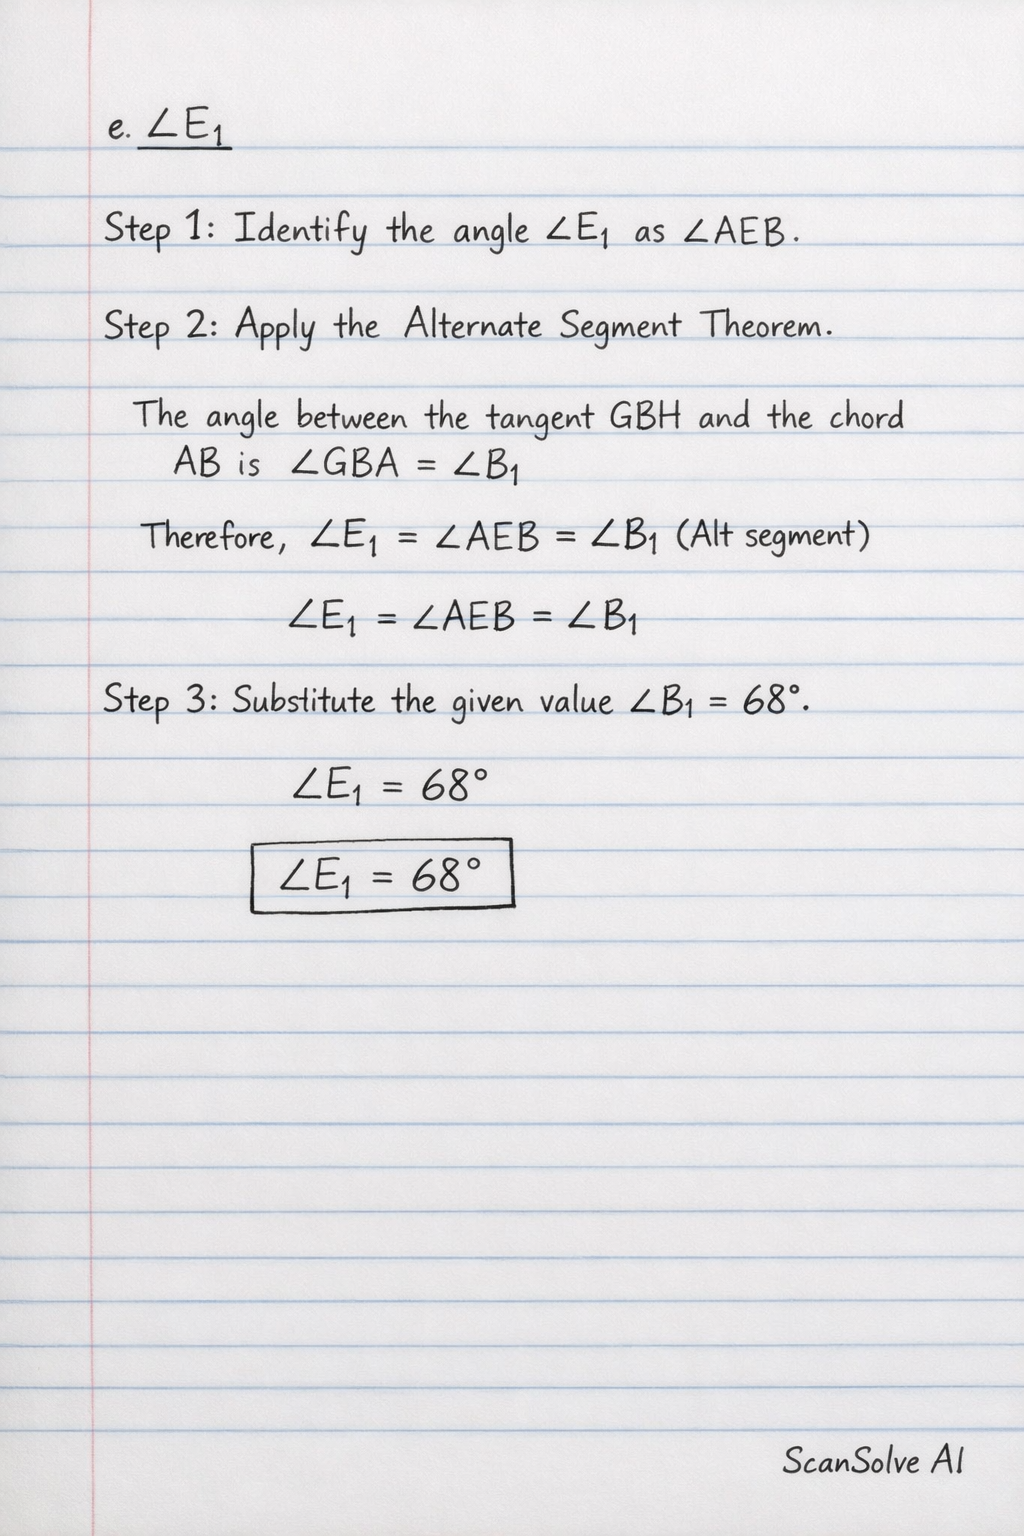 e. ∠E₁
Step 1: Identify the angle ∠E₁ as ∠AEB.
Step 2: Apply the Alternate Segment Theorem.
The angle between the tangent GBH and the chord
AB is ∠GBA = ∠B₁
Therefore, ∠E₁ = ∠AEB = ∠B₁ (Alt segment)
∠E₁ = ∠AEB = ∠B₁
Step 3: Substitute the given value ∠B₁ = 68°.
∠E₁ = 68°
∠E₁ = 68°
ScanSolve AI